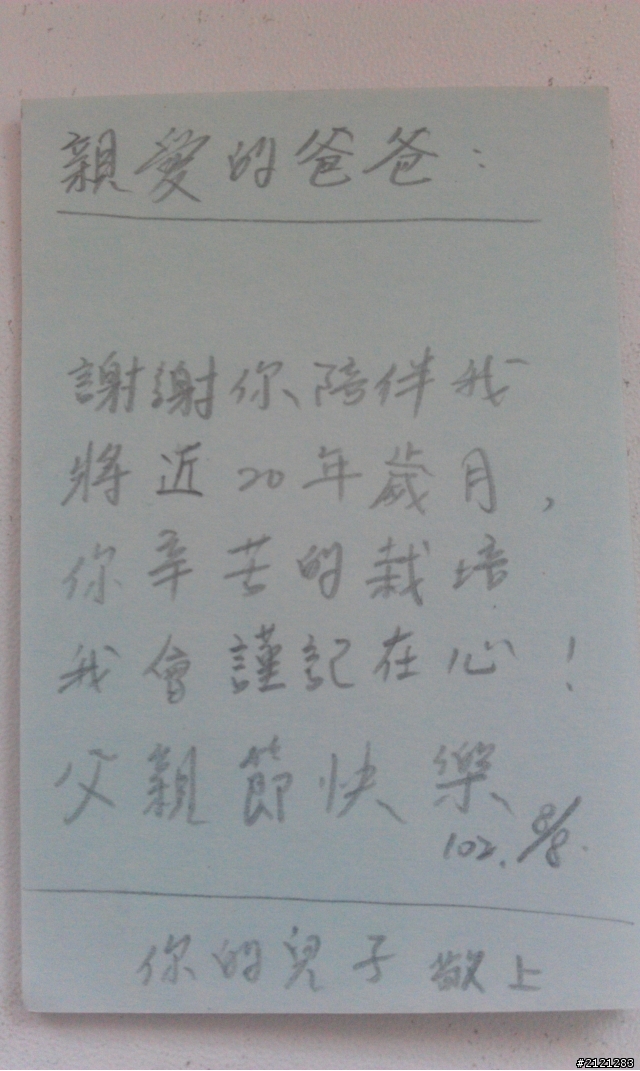 親愛的爸爸：
謝謝你陪伴我
將近20年歲月，
你辛苦的栽培
我會謹記在心！
父親節快樂
102. 8/8.
你的兒子 敬上
#2121283